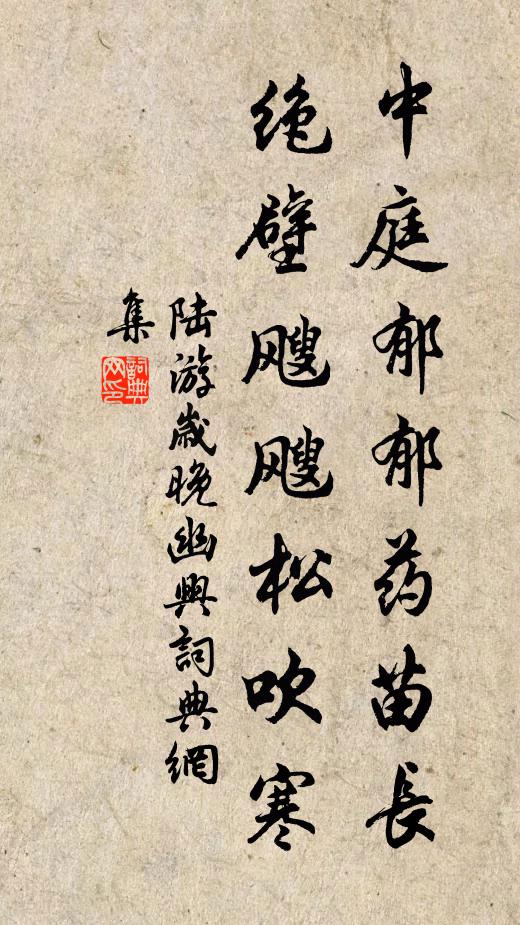 中庭郁郁药苗長
绝壁颼颼松吹寒
陆游歲晚幽興詞典網
集
詞典网印